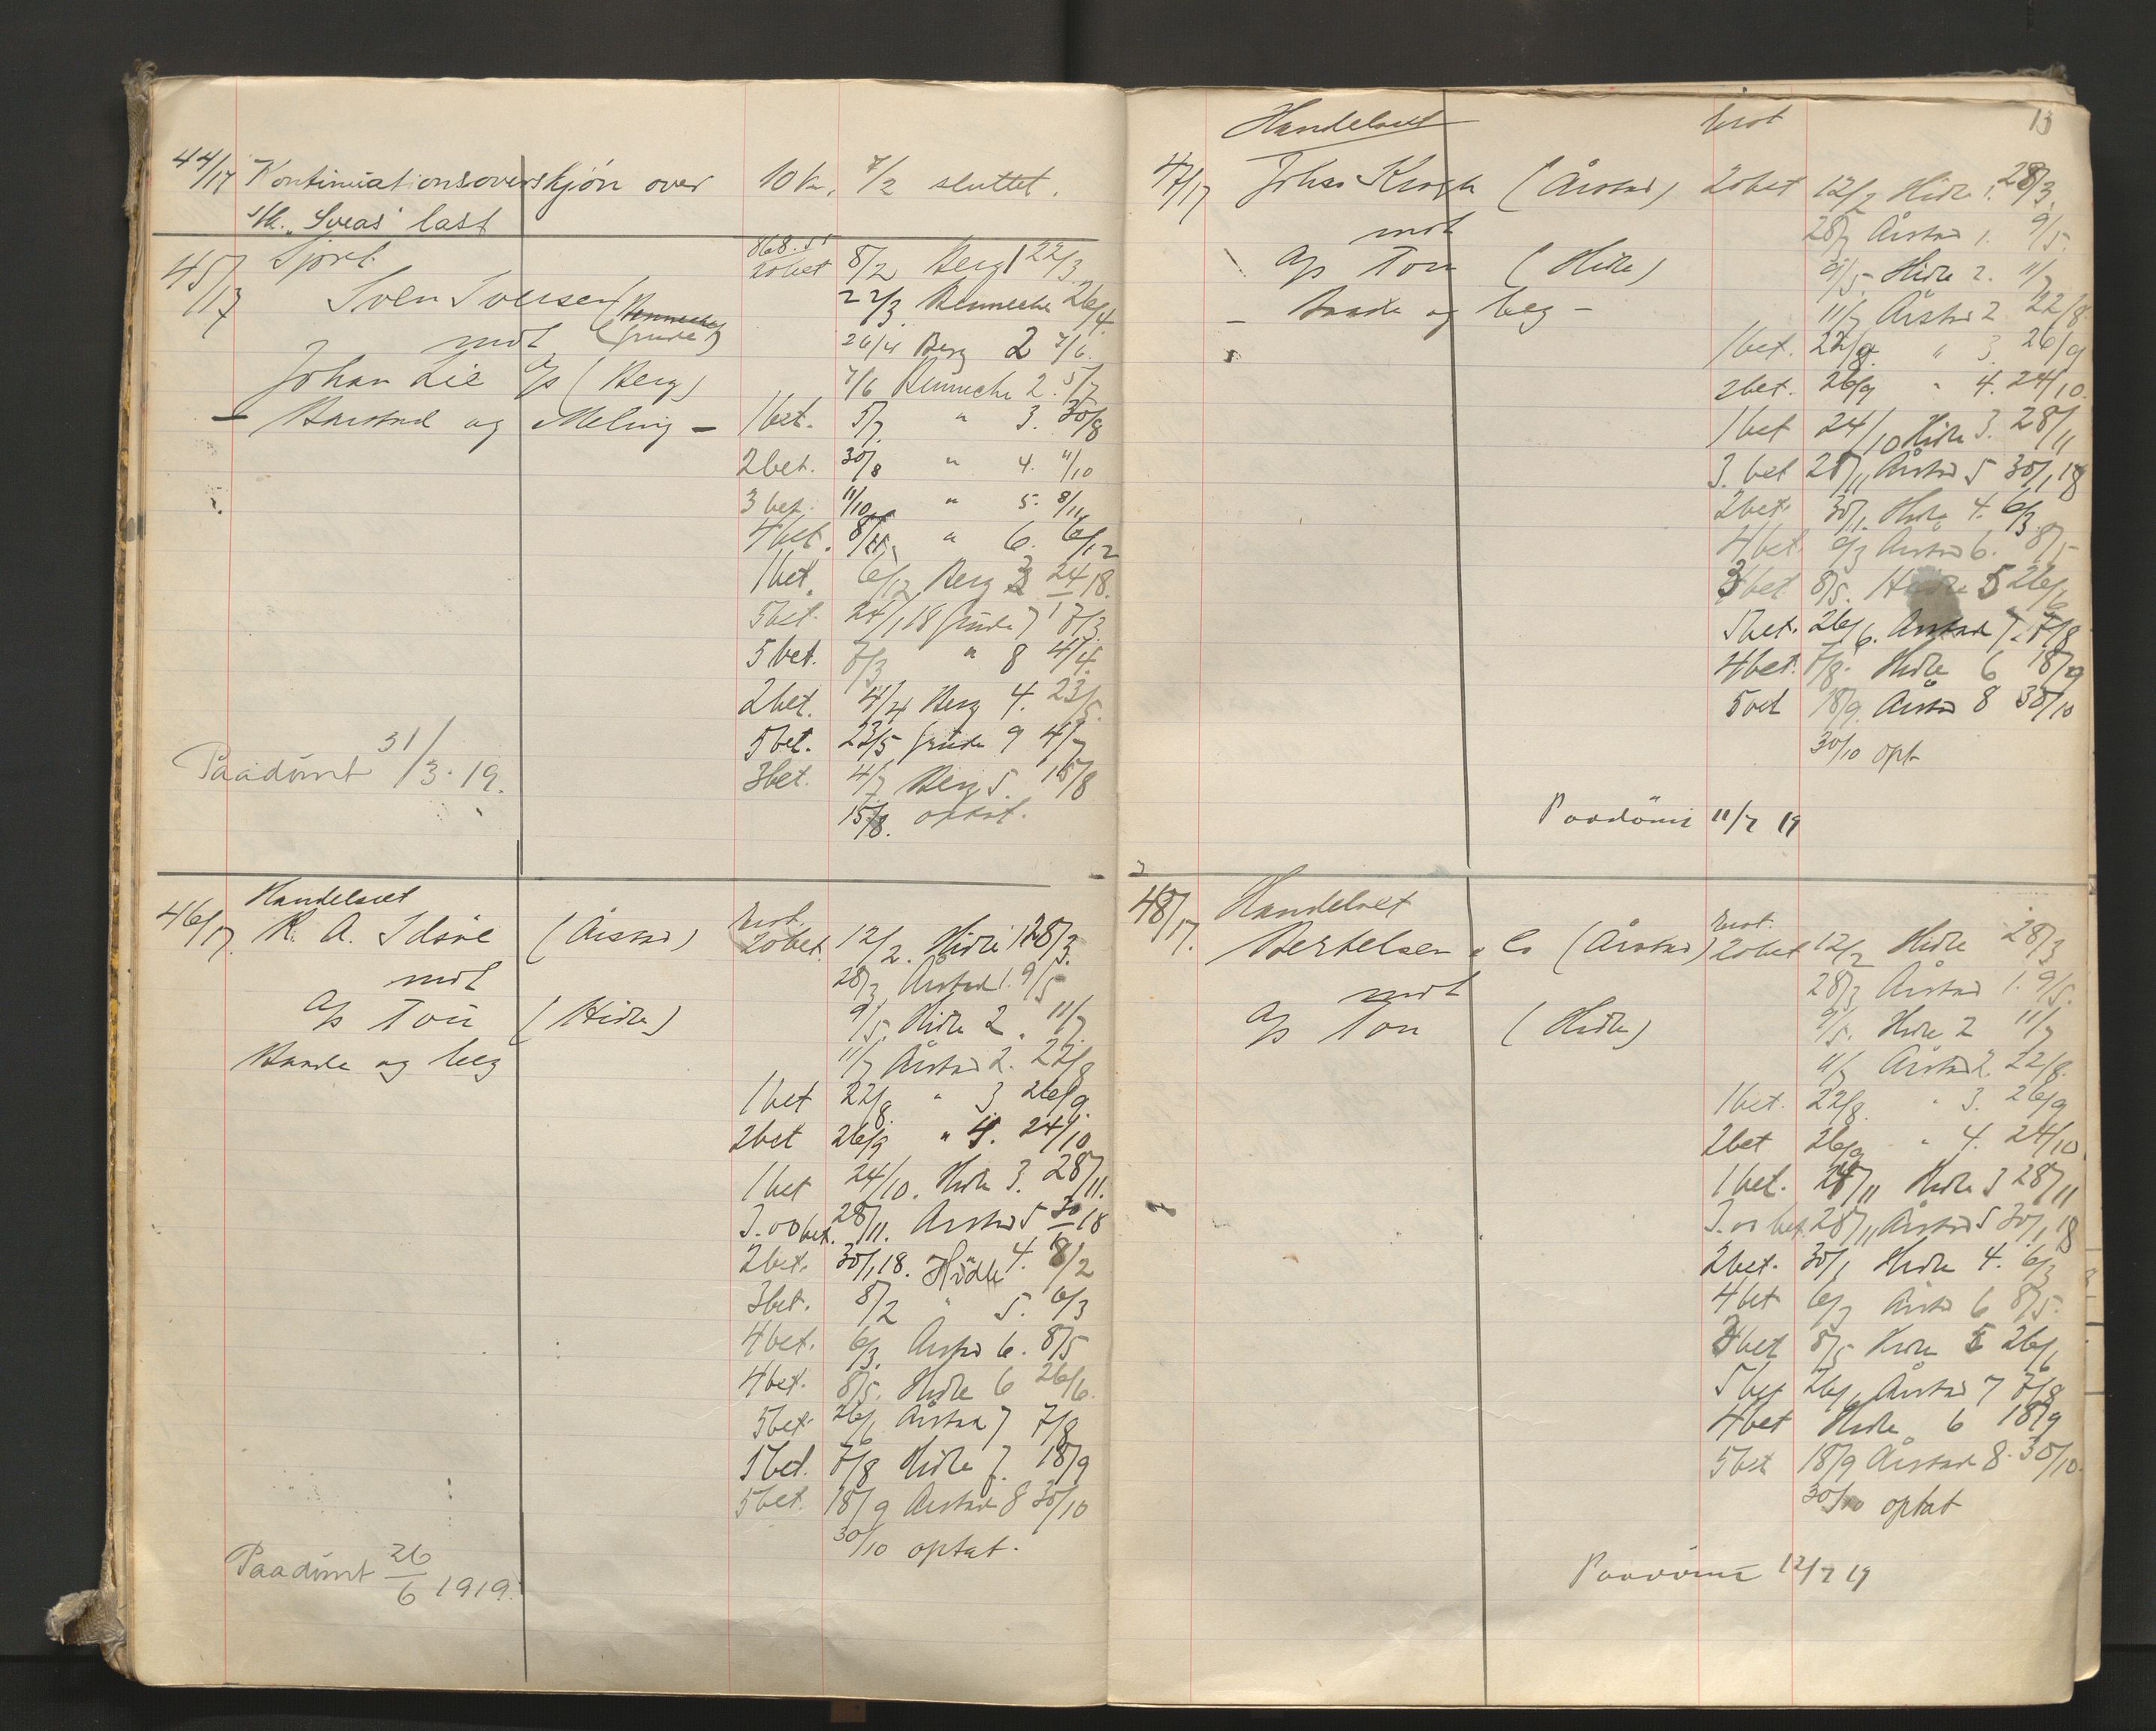 44/17 Kontinuationsoverskjön over 10 kr. 7/2 sluttet.
S/k. "Sveas" last
45/17 Sjöret. 20 bet 8/2 Berg 1 22/3
Sven Iversen (Grude) 22/3 Benneche 26/4.
mot 26/4 Berg 2 7/6.
Johan Lie A/S (Berg) 7/6 Benneche 2. 5/7
- Barstad og Meling - 1 bet. 5/7. " 3. 30/8
2 bet. 30/8 " 4. 11/10
3 bet. 11/10 " 5. 8/11
4 bet. 8/11 " 6. 6/12
1 bet. 6/12 Berg 3 24/1 18.
5 bet. 24/1 18 Grude 7 7/3
5 bet. 7/3 " 8 4/4.
2 bet. 4/4 Berg 4. 23/5.
5 bet. 23/5 Grude 9 4/7
Paadömt 31/3. 19. 3 bet. 4/7 Berg 5. 15/8
15/8. optat.
Handelsret
46/17. K. A. Idsöe (Årstad) 20 bet. 12/2. Hidle 1 28/3.
mot 28/3 Årstad 1. 9/5
A/S Tou (Hidle) 9/5. Hidle 2. 11/7
Haade og beg 11/7 Årstad 2. 22/8
1 bet 22/8. " 3 26/9.
2 bet 26/9 " 4. 24/10
1 bet 24/10. Hidle 3. 28/11.
3.00 bet. 28/11. Årstad 5 30/1 18
2 bet. 30/1 18. Hidle 4. 8/2
3 bet. 8/2 " 5. 6/3
4 bet. 6/3. Årstad 6. 8/5
4 bet. 8/5. Hidle 6 26/6.
5 bet. 26/6 Årstad 7 7/8
5 bet. 7/8 Hidle 7. 18/9
5 bet. 18/9 Årstad 8 30/10
30/10 optat.
Paadömt 26/6 1919.
13
Handelsret
47/17 Johs Krogh (Årstad) 20 bet 12/2 Hidle 1. 28/3.
mot 28/3 Årstad 1. 9/5.
A/S Tou (Hidle) 9/5. Hidle 2. 11/7
- Haade og beg - 11/7 Årstad 2 22/8
1 bet. 22/8. " 3. 26/9
2 bet. 26/9 " 4. 24/10.
1 bet 24/10 Hidle 3. 28/11
3. bet 28/11 Årstad 5 30/1 18
2 bet. 30/1. Hidle 4. 6/3
4 bet. 6/3 Årstad 6. 8/5
3 bet 8/5. Hidle 5 26/6
5 bet. 26/6. Årstad 7. 7/8
4 bet. 7/8. Hidle 6 18/9
5 bet 18/9. Årstad 8 30/10
30/10 opt
Paadömt 11/7 19
48/17. Handelsret
Bertelsen & Co (Årstad) 20 bet 12/2 Hidle 28/3
mot 28/3 Årstad 1. 9/5.
A/S Tou (Hidle) 9/5. Hidle 2 11/7
11/7 Årstad 2. 22/8.
1 bet. 22/8. " 3. 26/9
2 bet 26/9 " 4. 24/10
1 bet. 24/11 Hidle 3 28/11
3.00 bet 28/11 Årstad 5 30/1 18
2 bet. 30/1 Hidle 4. 6/3
4 bet 6/3 Årstad 6 8/5.
3 bet 8/5 Hidle 5 26/6
5 bet 26/6 Årstad 7 7/8
4 bet Hidle 6 18/9
5 bet 18/9 Årstad 8. 30/10.
30/10 optat
Paadömt 12/7 19